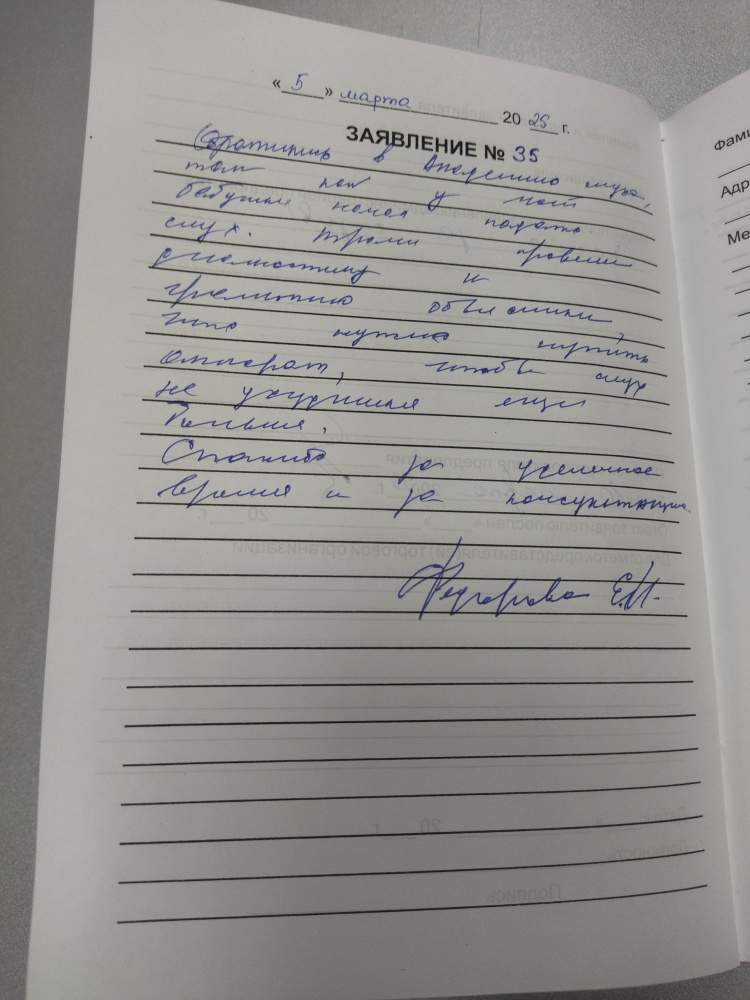 « 5 » марта 20 25 г.
ЗАЯВЛЕНИЕ № 35
Обратились в Академию слуха,
так как у моей
бабушки начал падать
слух. провели
диагностику и
грамотно объяснили,
что нужно купить
аппарат, чтобы слух
не ухудшился еще
больше.
Спасибо за уделенное
время и за консультацию.
Федорова Е.И.
Фами
Адр
Ме